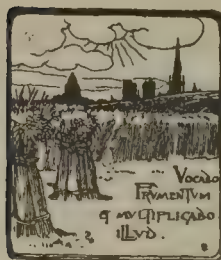 VOCABO
FRVMENTVM
& MVLTIPLICABO
ILLVD.